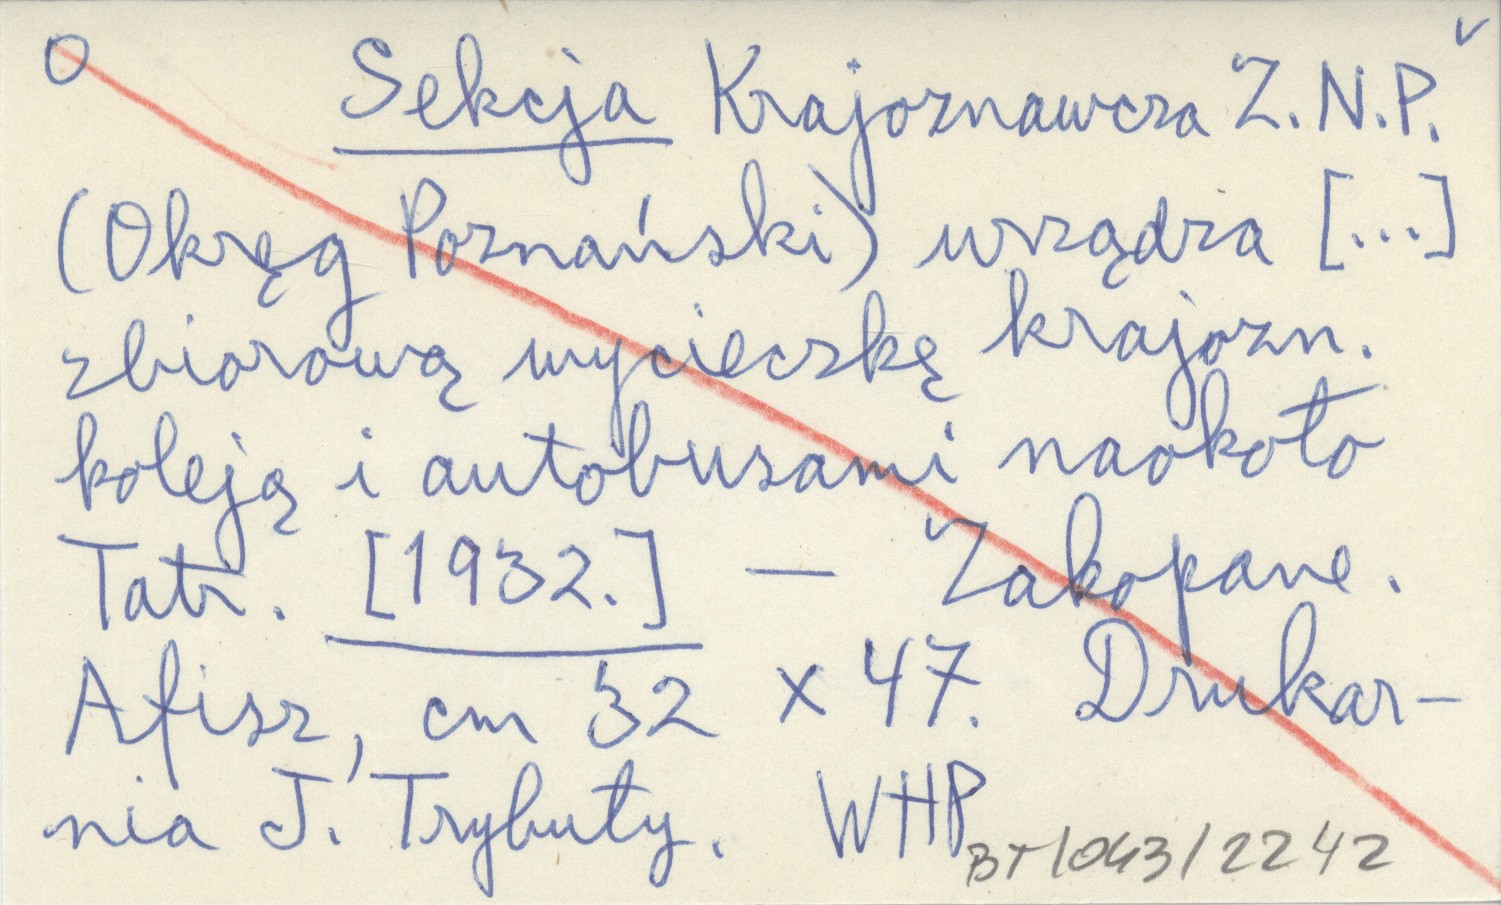 O Sekcja Krajoznawcza Z.N.P. v
(Okręg Poznański) urządza [...]
zbiorową wycieczkę krajozn.
koleją i autobusami naokoło
Tatr. [1932.] — Zakopane.
Afisz, cm 32 x 47. Drukar-
nia J. Trybuły. WHP
BT/043/2242